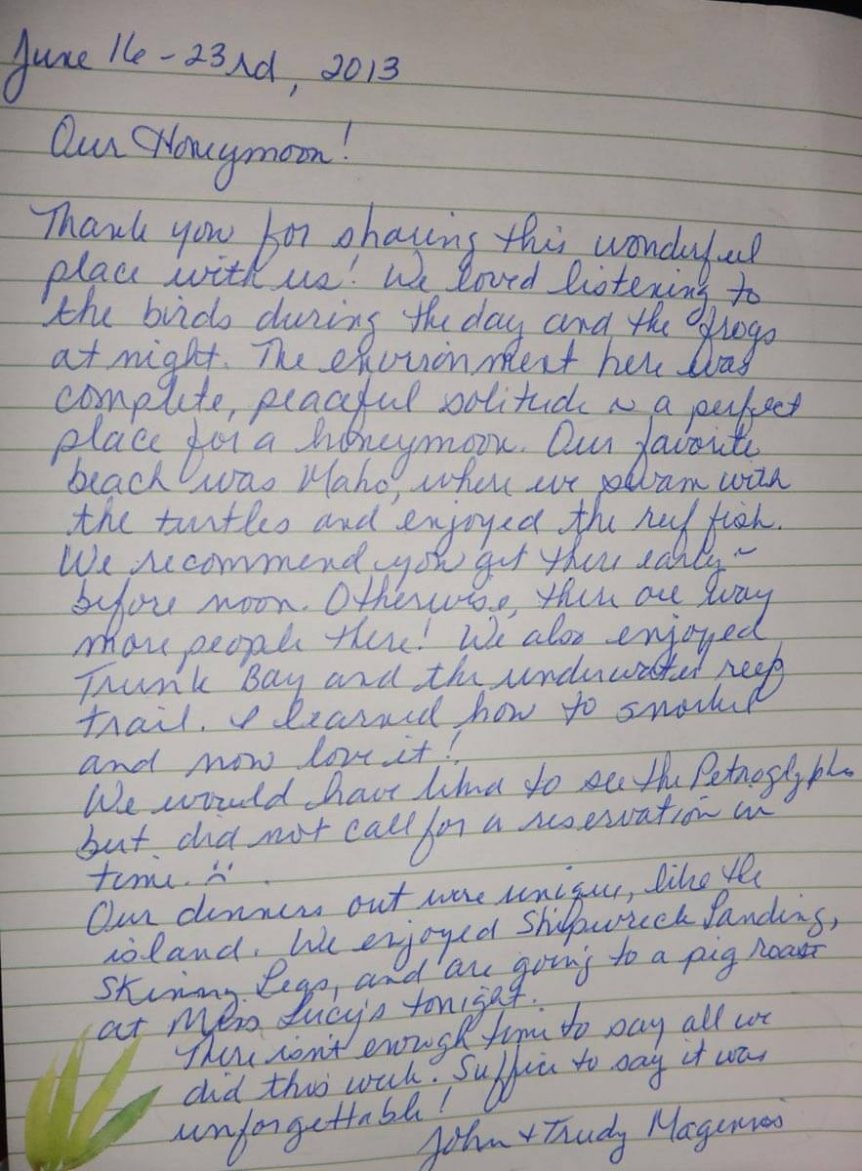 June 16 - 23rd, 2013
Our Honeymoon!
Thank you for sharing this wonderful
place with us! We loved listening to
the birds during the day and the frogs
at night. The environment here was
complete, peaceful solitude ~ a perfect
place for a honeymoon. Our favorite
beach was Maho, where we swam with
the turtles and enjoyed the reef fish.
We recommend you get there early ~
before noon. Otherwise, there are way
more people there! We also enjoyed
Trunk Bay and the underwater reef
trail. I learned how to snorkel
and now love it!
We would have liked to see the Petroglyphs
but did not call for a reservation in
time. :(
Our dinners out were unique, like the
island. We enjoyed Shipwreck Landing,
Skinny Legs, and are going to a pig roast
at Miss Lucy's tonight.
There isn't enough time to say all we
did this week. Suffice to say it was
unforgettable!
John + Trudy